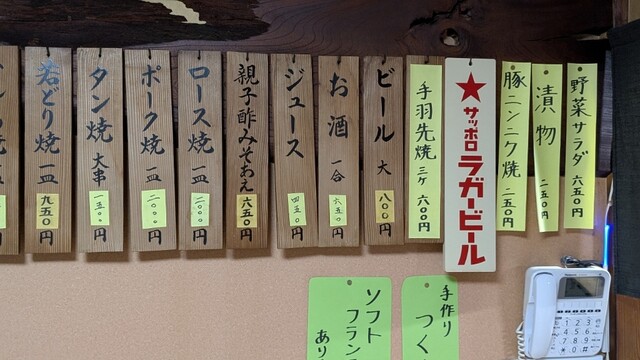 野菜サラダ 六五〇円
漬物 二五〇円
豚ニンニク焼 二五〇円
★サッポロラガービール
手羽先焼 三ケ 六〇〇円
ビール 大 八〇〇円
お酒 一合 六五〇円
ジュース 四五〇円
親子酢みそあえ 六五〇円
ロース焼 一皿 二〇〇〇円
ポーク焼 一皿 二〇〇〇円
タン焼 大串 一五〇〇円
若どり焼 一皿 九五〇円
手作り
つく
ソフト
フラン
あり